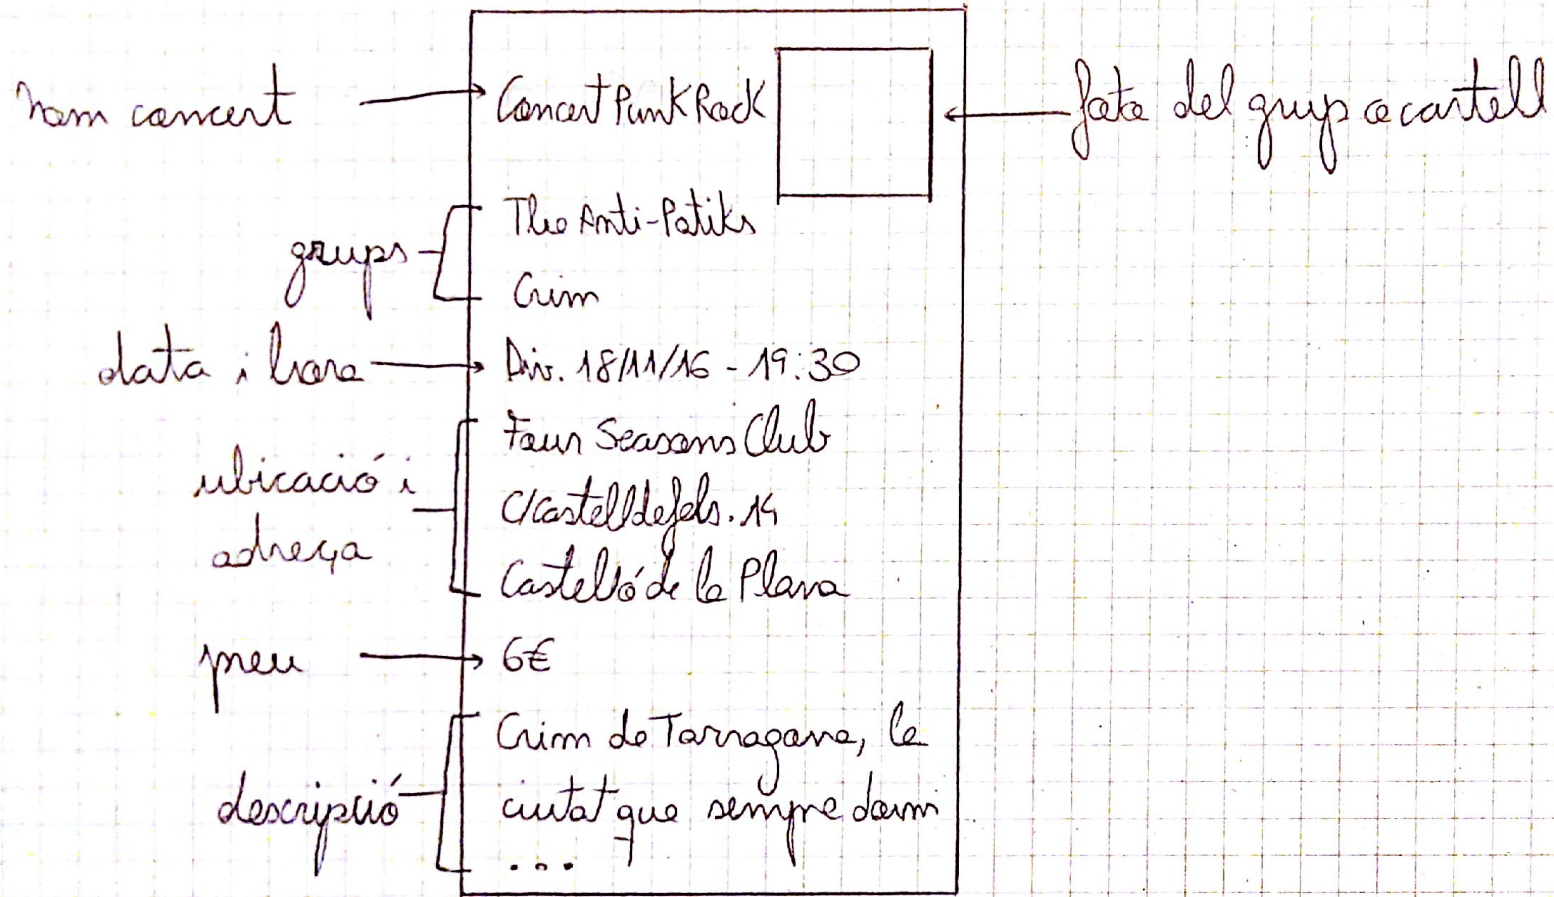 nom concert
Concert Punk Rock
foto del grup o cartell
grups
The Anti-Patiks
Crim
data i hora
Div. 18/11/16 - 19:30
Four Seasons Club
ubicació i
adreça
C/Castelldefels. 14
Castelló de la Plana
preu
6€
descripció
Crim de Tarragona, la
ciutat que sempre dorm
...